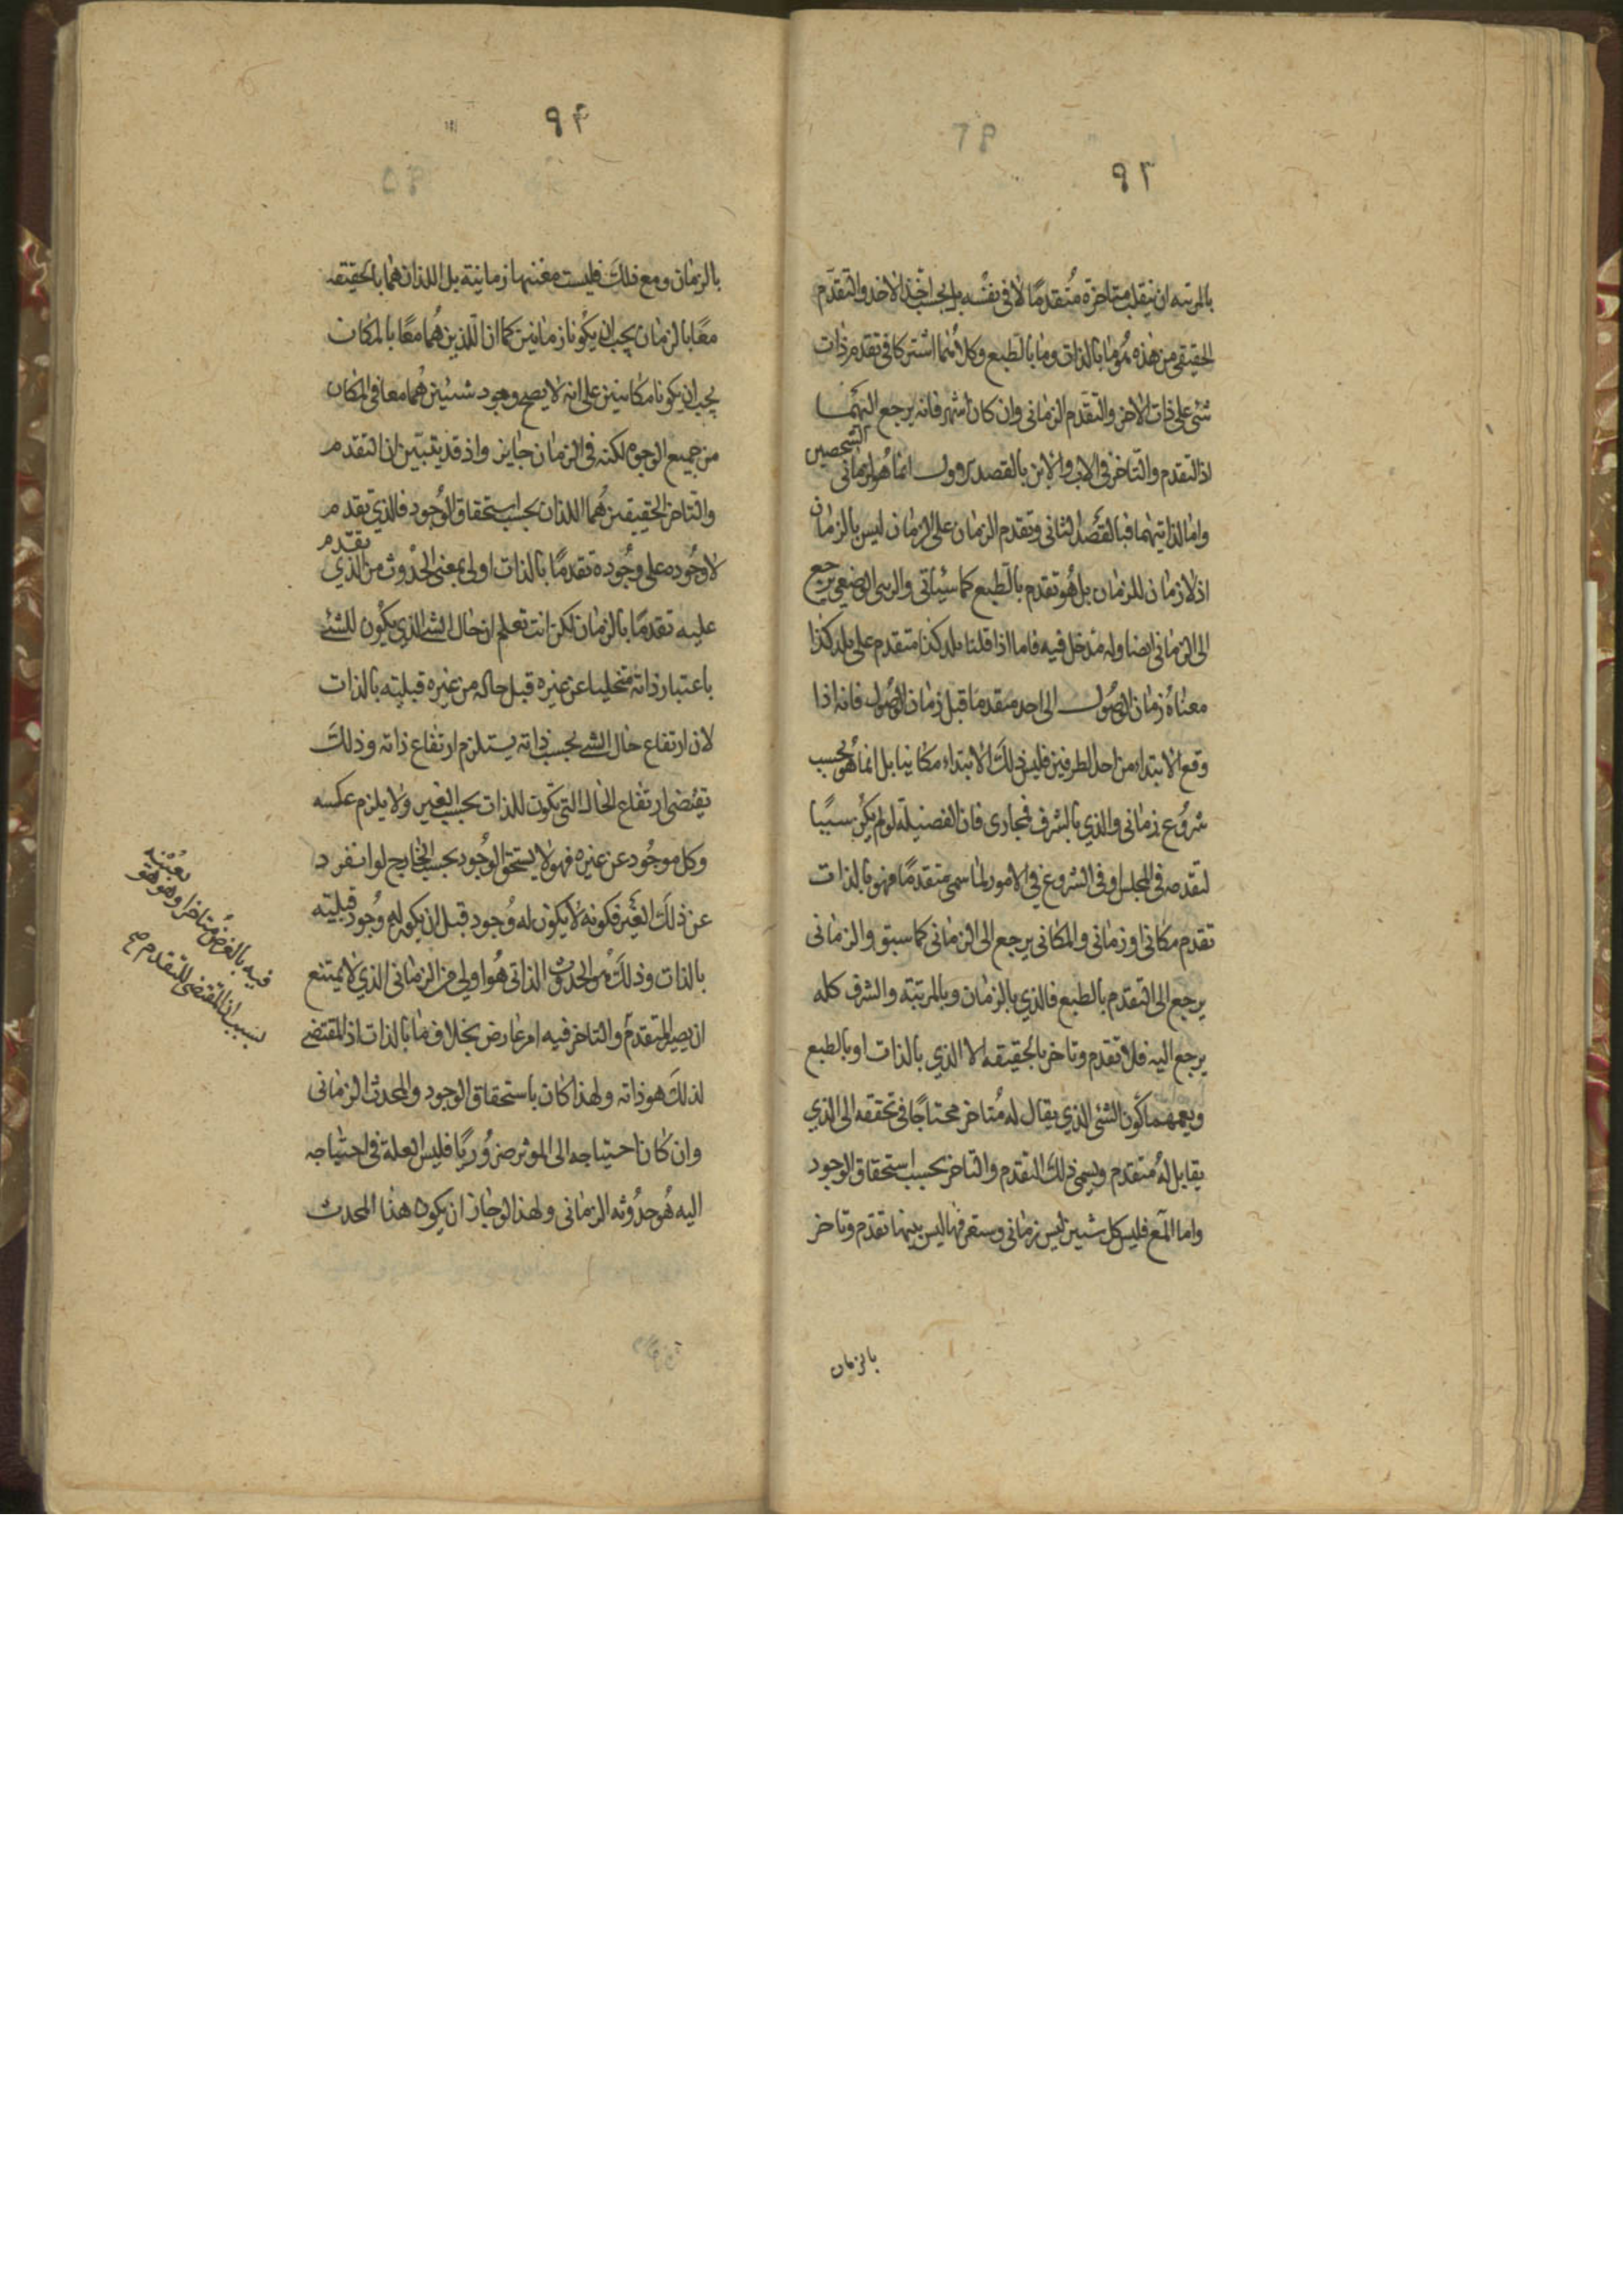 ٩٣
بالمرتبه ان ينقلب متاخرة مُتقدمًا لا فى نفسه بل بحسب اخذ الاخذ والتقدّم
الحقيقى من هذه هُو ما بالذات وما بالطبع وكلاهُما اشتركا فى تقدم ذات
شئ على ذات الاخر والتقدم الزمانى وان كان اشهر فانه يرجع اليهما
اذ التقدم والتاخر فى الاب والابن بالقصد الاول انما هُو لزمانى
الشخصين
واما لذاتيهما فبالقصد الثانى وتقدم الزمان على الزمان ليس بالزمان
اذ لا زمان للزمان بل هُو تقدم بالطبع كما سيأتى والرتبى الوضعى يرجع
الى الزمانى ايضا وله مدخل فيه فاما اذا قلنا بلد كذا متقدم على بلد كذا
معناهُ زمان الوصُول الى احد متقدما قبل زمان الوصُول فانه اذا
وقع الابتداء من احد الطرفين فليس ذلك الابتداء مكانيا بل انما هُو بحسب
شروُع زمانى والذي بالشرف فمجازى فان الفضيلة لو لم يكن سببًا
لتقدمه فى المجلس او فى الشروع فى الامور لما سمى متقدمًا فهو بالذات
تقدم مكانى او زمانى والمكانى يرجع الى الزمانى كما سبق والزمانى
يرجع الى التقدم بالطبع فالذي بالزمان وبالمرتبة والشرف كله
يرجع اليه فلا تقدم وتاخر بالحقيقه الا الذي بالذات او بالطبع
ويعمهما كون الشئ الذي يقال له مُتاخر محتاجًا فى تحققه الى الذي
يقابل لهُ متقدم ويسمى ذلك التقدم والتاخر بحسب استحقاق الوجود
واما المع فليس كل شيئين ليس زمانى وستعرفها ليس بينهما تقدّم وتاخر
بالزمان
٩۴
بالزمان ومع ذلك فليست معيتهما زمانية بل اللذان هُما بالحقيقه
معًا بالزمان يجب ان يكُونا زمانين كما ان اللذين هُما معًا بالمكان
يجب ان يكونا مكانيين على انه لا يصح وجود شيئين هُما معا فى المكان
من جميع الوجوه لكنه فى الزمان جايز واذ قد يتبيّن ان التقدم
والتاخر الحقيقين هُما اللذان بحسب استحقاق الوُجود فالذي تقدم
لا وجُوده على وجُوده تقدمًا بالذات اولى بمعنى الحدُوث من الذي
تقدّم
عليه تقدمًا بالزمان لكن انت تعلم ان حال الشئ الذي يكُون للشئ
باعتبار ذاته متخليا عن غيره قبل حاله من غيره قبليته بالذات
لان ارتفاع حال الشئ بحسب ذاته يستلزم ارتفاع ذاته وذلك
تقتضى ارتفاع الحال التى تكون للذات بحسب الغير ولا يلزم عكسه
وكل موجُود عن غيره فهو لا يستحق الوُجود بحسب الخارج لو انفرد
عن ذلك الغير فكونه لا يكون له وُجود قبل ان يكون له وُجود قبليته
بالذات وذلك هُو الحدوث الذاتى هُو اولى من الزمانى الذي لا يمتنع
ان يصير المتقدم والتاخر فيه امر عارض بخلاف ما بالذات اذ المقتضى
لذلك هو ذاته ولهذا كان باستحقاق الوجود والمحدث الزمانى
وان كان احتياجه الى الموثر ضرُوريًا فليس العلة فى احتياجه
اليه هُو حدُوثه الزمانى ولهذا لو جاز ان يكون هذا المحدث
بعينه
فيه بالعرض متاخرا وهو هو
بسبب ان المقتضى للتقدم صح